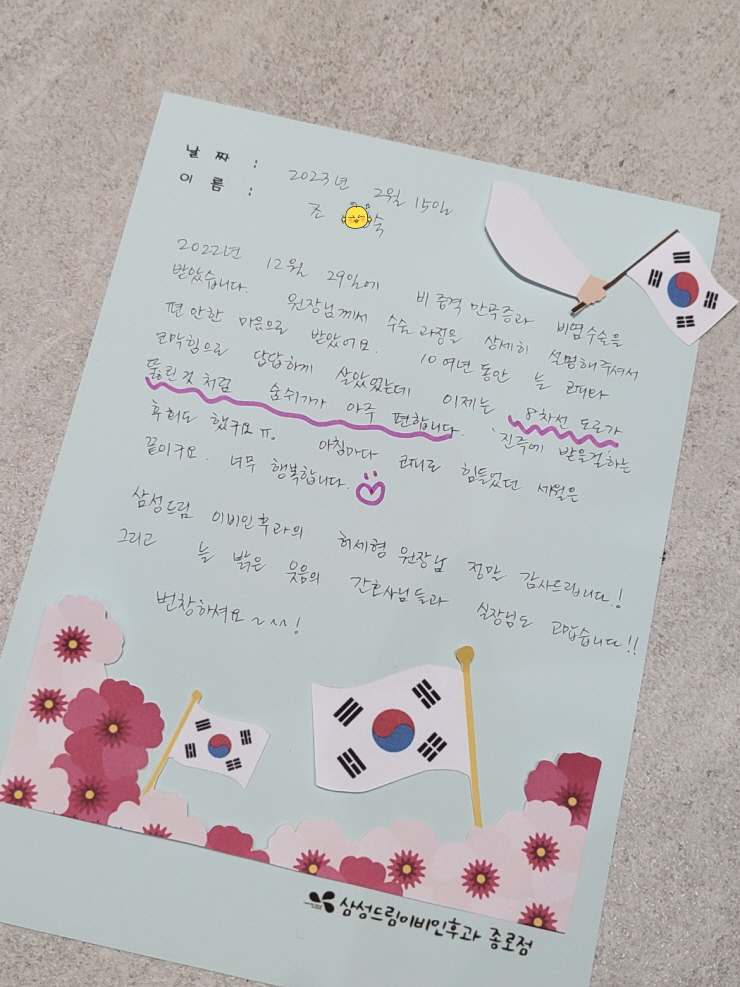 날 짜 : 2023년 2월 15일
이 름 : 조 숙
2022년 12월 29일에 비중격 만곡증과 비염수술을
받았습니다. 원장님께서 수술 과정을 상세히 설명해주셔서
편안한 마음으로 받았어요. 10여년 동안 늘 코피와
코막힘으로 답답하게 살았었는데 이제는 8차선 도로가
뚫린것 처럼 숨쉬기가 아주 편합니다. '진즉에 받을걸'하는
후회도 했구요ㅠ. 아침마다 코피로 힘들었던 세월은
끝이구요. 너무 행복합니다.
삼성드림 이비인후과의 허세형 원장님 정말 감사드립니다!
그리고 늘 밝은 웃음의 간호사님들과 실장님도 고맙습니다!!
번창하셔요~~~!
삼성드림이비인후과 종로점